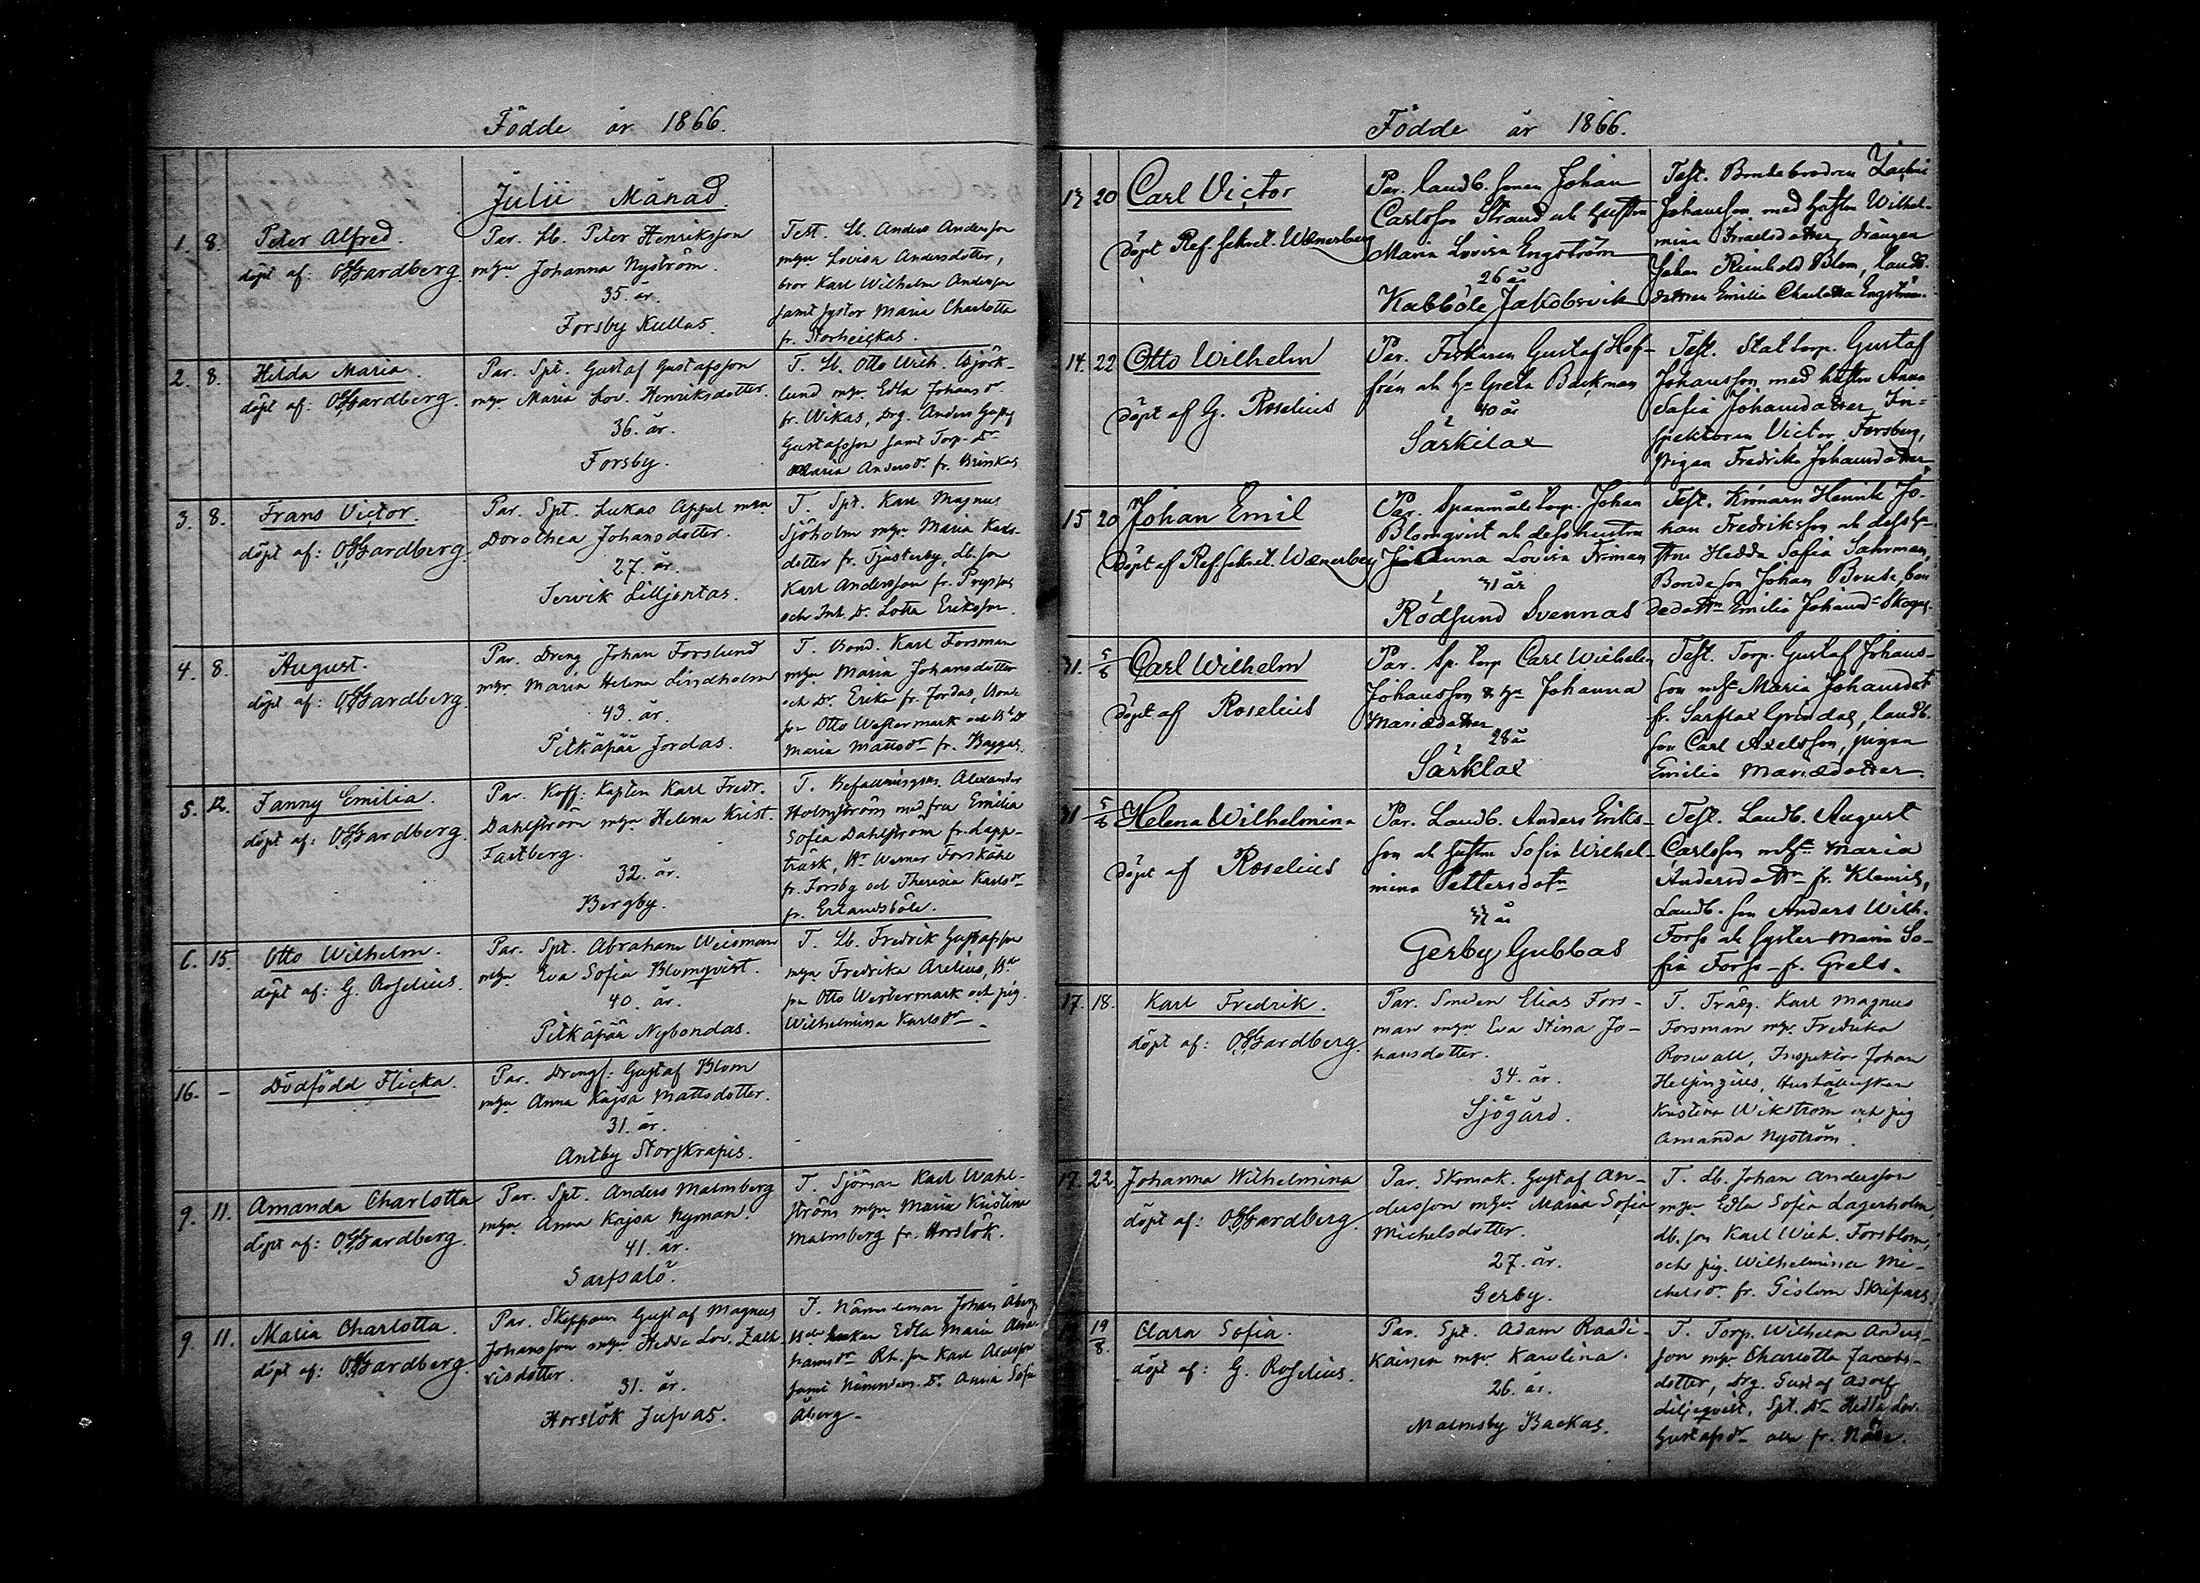 Födde år 1866.
Julii Månad.
1. 8. Peter Alfred.
döpt af: O. Gardberg.
Par. Lb. Peter Henriksson
m.h. Johanna Nyström.
35. år.
Forsby Kullas.
Test. Lb. Anders Andersson
Lovisa Andersdotter,
bror Karl Wilhelm Andersson
samt syster Maria Charlotta
fr.
2. 8. Hilda Maria.
döpt af: O. Gardberg.
Par. Spt. Gustaf Gustafsson
Maria Lov. Henriksdotter.
36. år.
Forsby.
T. Lb. Otto Wilh. Björk-
lund Edla Johansdr
fr. Wikas, Drg. Anders Gustaf
Gustafsson samt Torp. dr
Maria Andersdr fr. Briskas
3. 8. Frans Victor.
döpt af: O. Gardberg.
Par. Spt. Lukas Appel
Dorothea Johansdotter.
27. år.
Tervik Lilljortas.
T. Spt. Karl Magnus
Sjöholm Maria Karls-
dotter fr. Tjusterby, Lb. son
Karl Andersson fr.
och Inh. Dr Lotta Eriksson.
4. 8. August.
döpt af: O. Gardberg.
Par. Dreng Johan Forslund
Maria Helena Lindholm
43. år.
Pitkäpää Jordas.
T. Bond. Karl Forsman
Maria Johansdotter
och Dr Erika fr. Jordas, Bonde
son Otto Westermark och
Maria Mattsdr fr. Baggas.
5. 12. Fanny Emilia.
döpt af: O. Gardberg.
Par. Koff: Kapten Karl Fredr.
Dahlström Helena Krist.
Fastberg.
32. år.
Bergby.
T. Befallningsm. Alexander
Holmström med fru Emilia
Sofia Dahlström fr. Lapp-
träsk, Hr Werner Forskåhl
fr. Forsby och Theresia Karlsdr
fr. Erlandsböle.
6. 15. Otto Wilhelm.
döpt af: G. Roselius.
Par. Spt. Abraham Weisman
Eva Sofia Blomqvist.
40. år.
Pitkäpää Nybondas.
T. Lb. Fredrik Gustafsson
Fredrika Arelius,
son Otto Westermark och pig.
Wilhelmina Karlsdr.
16. - Dödfödd Flicka.
Par. Drengs: Gustaf Blom
Anna Kajsa Mattsdotter.
31. år.
Antby Storskrapis.
9. 11. Amanda Charlotta
döpt af: O. Gardberg.
Par. Spt. Anders Malmberg
Anna Kajsa Nyman.
41. år.
Sarfsalö.
T. Sjöman Karl Wahl-
ström Maria Kristina
Malmberg fr. Horslök.
9. 11. Maria Charlotta.
döpt af: O. Gardberg.
Par. Skepparen Gustaf Magnus
Johansson Hedda Lov. Zach
risdotter.
31. år.
Horslök Jufvas.
T. Nämndeman Johan Åberg
Edla Maria
Karl
samt Nämndem. Dr Anna Sofia
Åberg.
Födde år 1866.
13 20 Carl Victor
Döpt Ref. sekret. Wænerberg
Par. landb. sonen Johan
Carlsson Strand och hustrun
Maria Lovisa Engström
26 år
Kabböle Jakobsvik
Test. Bondebrodren
Johansson med hustru Wilhel-
mina Israelsdotter drängen
Johan Reinhold Blom, landb.
dottren Emilia Charlotta Engström.
14. 22 Otto Wilhelm
Döpt af G. Roselius
Par. Fiskaren Gustaf Hof-
frén och Greta Backman
40 år
Särkilax
Test. Stattorp. Gustaf
Johansson med hustru Anna
Sofia Johansdotter, In-
spektoren Victor Forsberg,
pigan Fredrika Johansdotter
15 20 Johan Emil
Döpt af Ref. sekret. Wænerberg
Par. Spanmåls torp. Johan
Blomqvist och dess hustru
Johanna Lovisa Friman
41 år
Rödsund Svennas
Test. Henrik Jo-
han Fredriksson och dess hu-
stru Hedda Sofia Sahrman,
Bondeson Johan bon
dedottren Emilia
31. 5/8 Carl Wilhelm
Döpt af Roselius
Par. Sp. torp Carl Wilhelm
Johansson & Johanna
Mariædotter
28 år
Särklax
Test. Torp. Gustaf Johans-
son Maria Johansdot
fr. Sarflax Grindas, landb.
son Carl Axelsson, pigan
Emilia Mariædotter.
31 5/8 Helena Wilhelmina
Döpt af Roselius
Par. Landb. Anders Eriks-
son och hustru Sofia Wilhel-
mina Pettersdotr
år
Gerby Gubbas
Test. Landb. August
Carlsson Maria
Andersdotter fr. Klemis,
Landb. son Anders Wilh.
Forss och syster Maria So-
fia Forss fr. Grels.
17. 18. Karl Fredrik.
döpt af: O. Gardberg.
Par. Smeden Elias Fors-
man Eva Stina Jo-
hansdotter.
34. år.
Sjögård.
T. Karl Magnus
Forsman Fredrika
Rosvall, Inspektor Johan
Helsingius, Hushållerskan
Kristina Wikström och pig
Amanda Nyström.
17. 22 Johanna Wilhelmina
döpt af: O. Gardberg.
Par. Skomak. Gustaf An-
dersson Maria Sofia
Michelsdotter.
27. år.
Gerby.
T. Lb. Johan Andersson
Edla Sofia Lagerholm,
Lb. son Karl Wilh. Forsblom,
och pig. Wilhelmina Mi-
chelsdr fr. Gislom Skripars.
19/8. Clara Sofia.
döpt af: G. Roselius.
Par. Spt. Adam Raadi-
kainen Karolina.
26. år.
Malmsby Backas.
T. Torp. Wilhelm Anders-
son Charlotta Jacobs-
dotter, Drg. Gustaf Adolf
Liljeqvist, Spt. Dr Hedda Lov.
Gustafsdr alla fr.